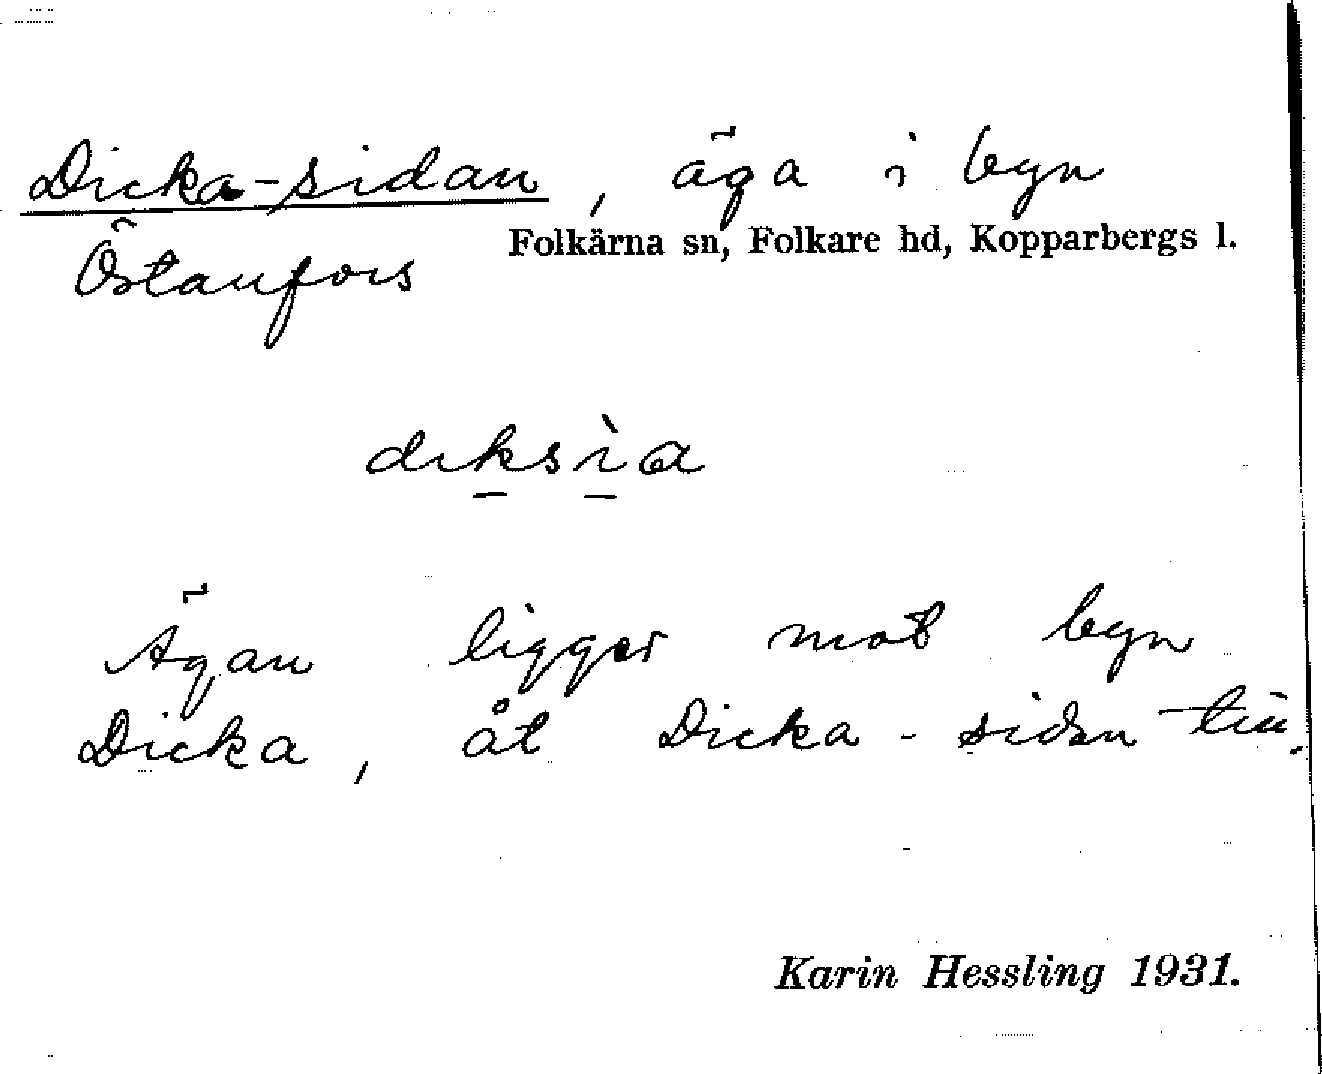 Dicka-sidan, äga i byn
Folkärna sn, Folkare hd, Kopparbergs l.
Östanfors
diksìa
Ägan ligger mot byn
Dicka, åt Dicka-sidan till.
Karin Hessling 1931.